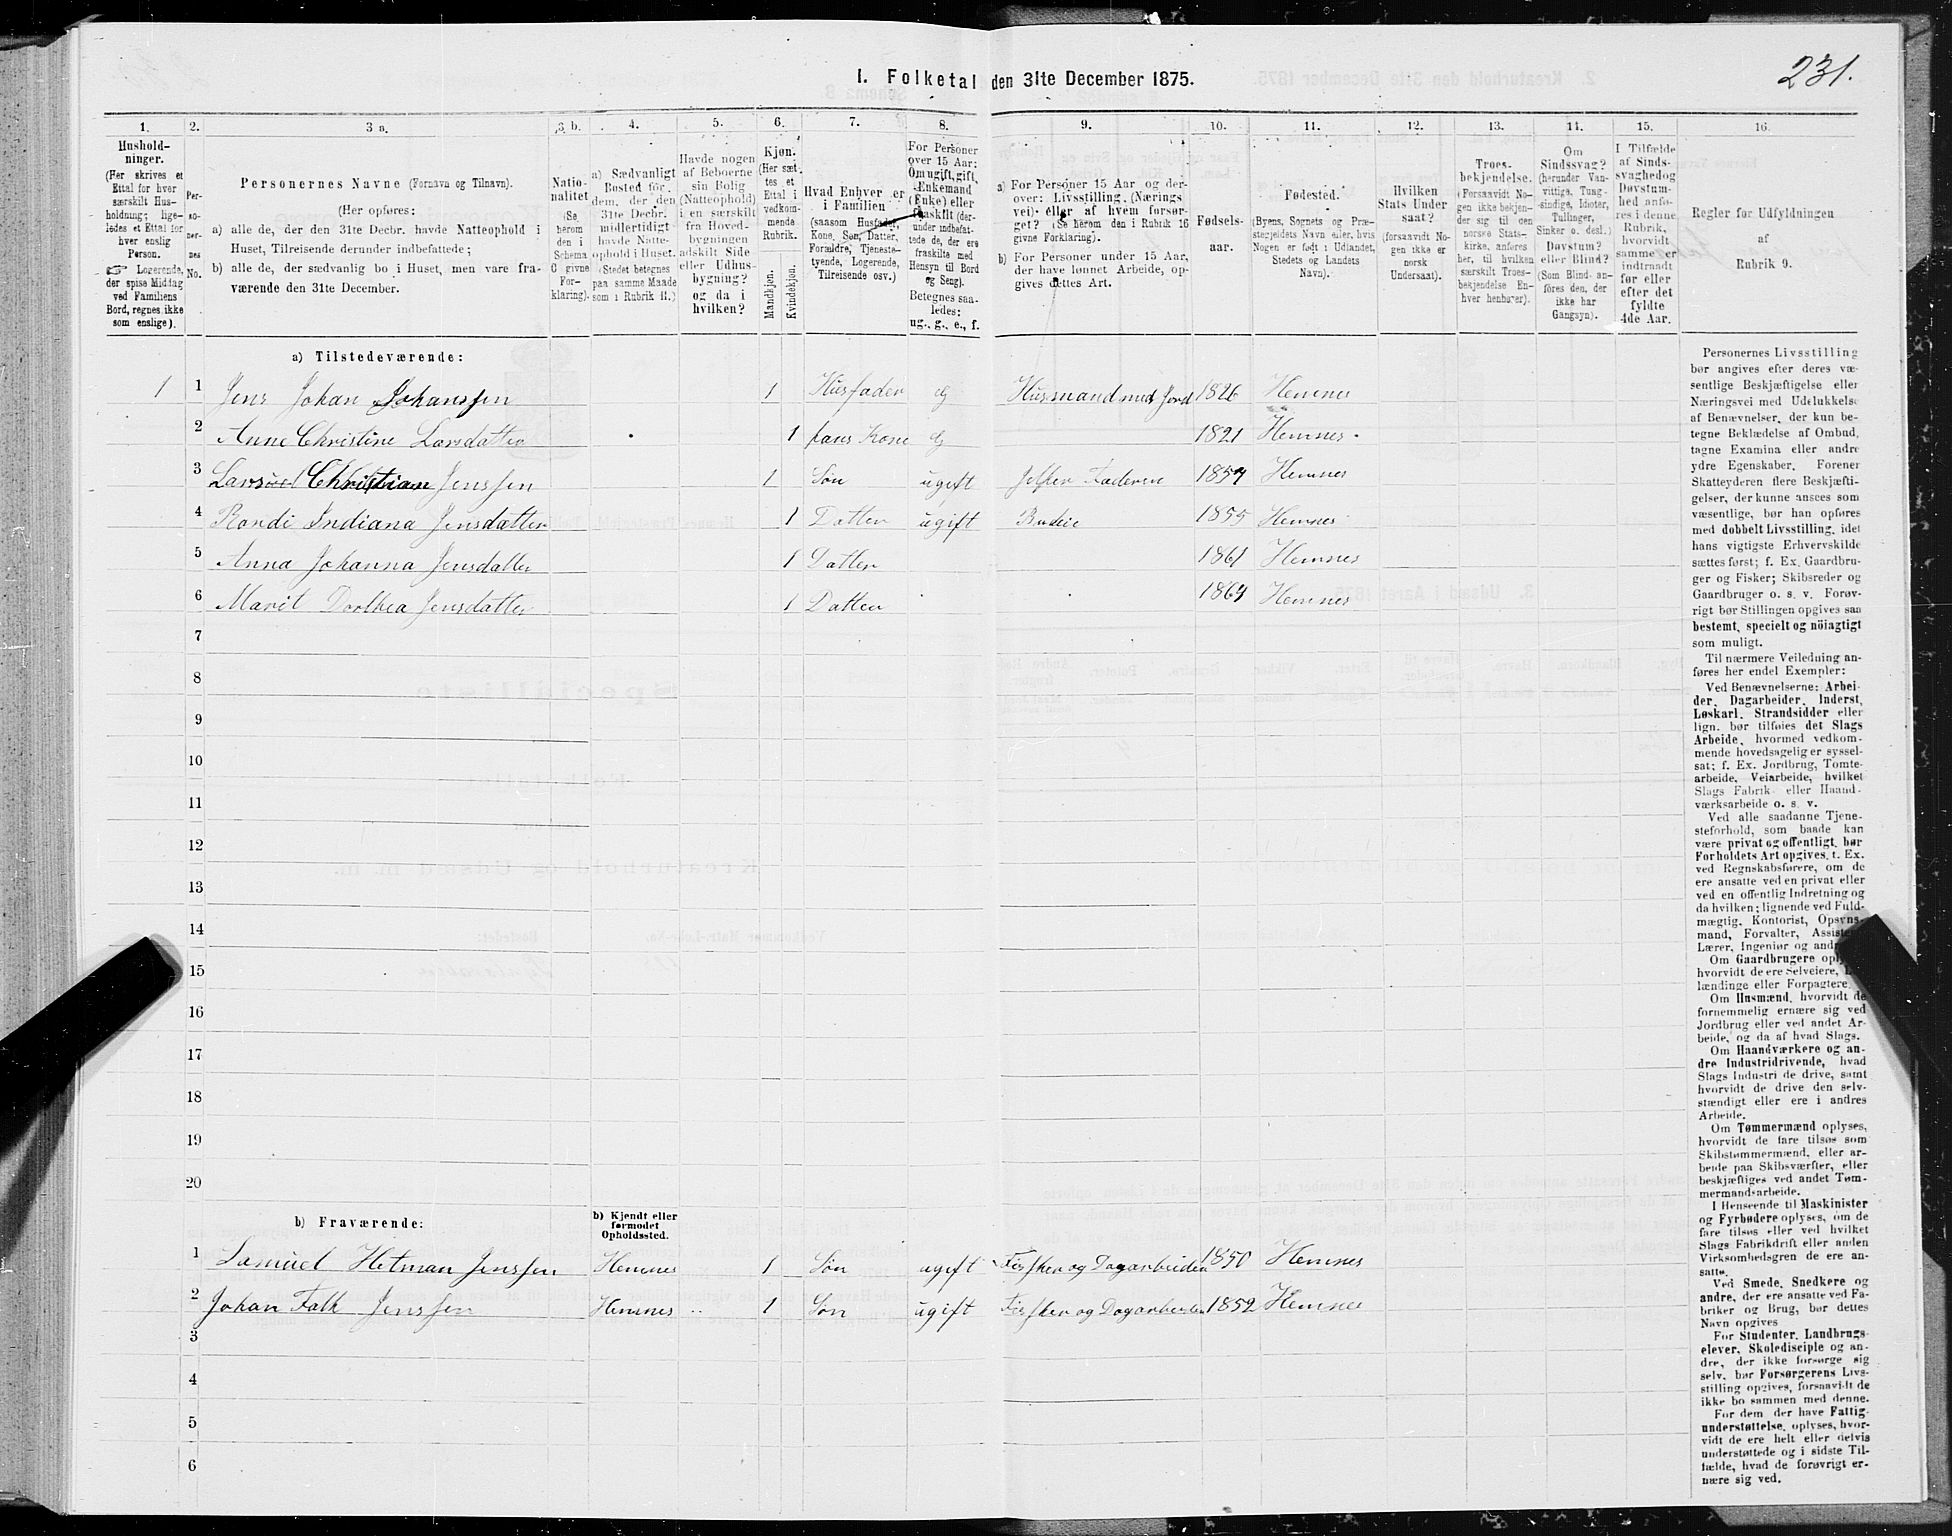 231.
I. Folketal den 31te December 1875.
1. 2. 3 a. 3 b. 4. 5. 6. 7. 8. 9. 10. 11. 12. 13. 14. 15. 16.
Hushold-
ninger.
(Her skrives et
Ettal for hver
særskilt Hus-
holdning; lige-
ledes et Ettal for
hver enslig
Person.
☞ Logerende,
der spise Middag
ved Familiens
Bord, regnes ikke
som enslige).
Per-
so-
ner-
nes
No.
Personernes Navne (Fornavn og Tilnavn).
(Her opføres:
a) alle de, der den 31te Decbr. havde Natteophold i
Huset, Tilreisende derunder indbefattede;
b) alle de, der sædvanlig bo i Huset, men vare fra-
værende den 31te December.
Natio-
nalitet
(Se
herom
den i
Schema
C givne
For-
klaring).
a) Sædvanligt
Bosted for
dem, der den
31te Decbr.
midlertidigt
havde Natte-
ophold i Huset.
(Stedet betegnes
paa samme Maade
som i Rubrik 11.)
Havde nogen
af Beboerne
sin Bolig
(Natteophold)
i en særskilt
fra Hoved-
bygningen
adskilt Side
eller Udhus-
bygning?
og da i
hvilken?
Kjøn.
(Her sæt-
tes et
Ettal i
vedkom-
mende
Rubrik.
Mandkjøn.
Kvindekjøn.
Hvad Enhver er
i Familien
(saasom Husfader,
Kone, Søn, Datter,
Forældre, Tjeneste-
tyende, Logerende,
Tilreisende osv.)
For Personer
over 15 Aar:
Om ugift, gift,
Enkemand
(Enke) eller
fraskilt (der-
under indbefat-
tede de, der ere
fraskilte med
Hensyn til Bord
og Seng).
Betegnes saa-
ledes:
ug., g., e., f.
a) For Personer 15 Aar og der-
over: Livsstilling. (Nærings
vei)- eller af hvem forsør-
get? (Se herom den i Rubrik 16
givne Forklaring).
b) For Personer under 15 Aar,
der have lønnet Arbeide, op-
gives dettes Art.
Fødsels-
aar.
Fødested.
(Byens, Sognets og Præ-
stegjeldets Navn eller, hvis
Nogen er født i Udlandet,
Stedets og Landets
Navn).
Hvilken
Stats Under
saat?
(forsaavidt No-
gen ikke er
norsk
Undersaat).
Troes-
bekjendelse.
(Forsaavidt No-
gen ikke bekjen-
der sig til den
norske Stats-
kirke, anføres
her, til hvilken
særskilt Troes-
bekjendelse En-
hver henhører).
Om
Sindssvag?
(herunder Van-
vittige, Tung-
sindige, Idioter,
Tullinger,
Sinker o. desl.)
Døvstum?
eller Blind?
(Som Blind an-
føres den, der
ikke har
Gangsyn).
I Tilfælde
af Sinds-
svaghed og
Døvstum-
hed anfø-
res i denne
Rubrik,
hvorvidt
samme er
indtraadt
før eller
efter det
fyldte
4de Aar.
Regler for Udfyldningen
af
Rubrik 9.
a) Tilstedeværende:
1 1 Jens Johan Johanssen 1 Husfader g Husmand med Jord 1826 Hemnes
2 Anne Christine Larsdatter 1 hans Kone g 1821 Hemnes
3 Christian Jenssen 1 Søn ugift Faderen 1857 Hemnes
4 Randi Indiana Jensdatter 1 Datter ugift Budeie 1855 Hemnes
5 Anna Johanna Jensdatter 1 Datter 1861 Hemnes
6 Marit Dorthea Jensdatter 1 Datter 1864 Hemnes
7
8
9
10
11
12
13
14
15
16
17
18
19
20
b) Fraværende:
b) Kjendt eller
formodet
Opholdssted.
1 Samuel Hetman Jenssen Hemnes 1 Søn ugift Fisker og Dagarbeider 1850 Hemnes
2 Johan Falk Jenssen Hemnes 1 Søn ugift Fisker og Dagarbeider 1852 Hemnes
3
4
5
6
Personernes Livsstilling
bør angives efter deres væ-
sentlige Beskjæftigelse eller
Næringsvei med Udelukkelse
af Benævnelser, der kun be-
tegne Beklædelse af Ombud,
tagne Examina eller andre
ydre Egenskaber. Forener
Skatteyderen flere Beskjæfti-
gelser, der kunne ansees som
væsentlige, bør han opføres
med dobbelt Livsstilling, idet
hans vigtigste Erhvervskilde
sættes først; f. Ex. Gaardbru-
ger og Fisker; Skibsreder og
Gaardbruger o. s. v. Forøv-
rigt bør Stillingen opgives saa
bestemt, specielt og nöiagtigt
som muligt.
Til nærmere Veiledning an-
føres her endel Exempler:
Ved Benævnelserne: Arbei-
der, Dagarbeider, Inderst,
Løskarl, Strandsidder eller
lign. bør tilføies det Slags
Arbeide, hvormed vedkom-
mende hovedsagelig er syssel-
sat; f. Ex. Jordbrug, Tomte-
arbeide, Veiarbeide, hvilket
Slags Fabrik- eller Haand-
værksarbeide o. s. v.
Ved alle saadanne Tjene-
steforhold, som baade kan
være privat og offentligt, bør
Forholdets Art opgives, t. Ex.
ved Regnskabsførere, om de
ere ansatte ved en privat eller
ved en offentlig Indretning og
da hvilken; lignende ved Fuld-
mægtig, Kontorist, Opsyns-
mand, Forvalter,
Lærer, Ingeniør og
Om Gaardbrugere
hvorvidt de ere Selveiere,
lændinge eller Forpagtere.
Om Husmænd, hvorvidt de
fornemmelig ernære sig ved
Jordbrug eller ved andet Ar-
beide, og da af hvad Slags.
Om Haandværkere og an-
dre Industridrivende, hvad
Slags Industri de drive, samt
hvorvidt de drive den selv-
stændigt eller ere i andres
Arbeide.
Om Tømmermænd oplyses,
hvorvidt de fare tilsøs som
Skibstømmermænd, eller ar-
beide paa Skibsværfter, eller
beskjæftiges ved andet Tøm-
mermandsarbeide.
I Henseende til Maskinister
og Fyrbødere oplyses, om de
fare tilsøs eller ved hvilket
Slags Fabrikdrift eller anden
Virksomhedsgren de ere an-
satte.
Ved Smede, Snedkere og
andre, der ere ansatte ved Fa-
briker og Brug, bør dettes
Navn opgives
For Studenter, Landbrugs-
elever, Skoledisciple og an-
dre, der ikke forsørge sig
selv, bør Forsørgerens Livs-
stilling opgives, forsaavidt de
ikke bo sammen med denne.
For dem, der have Fattig-
understøttelse, oplyses, hvor-
vidt de ere helt eller delvis
understøttede og i sidste Til-
fælde, hvad de forøvrigt er-
nære sig ved.